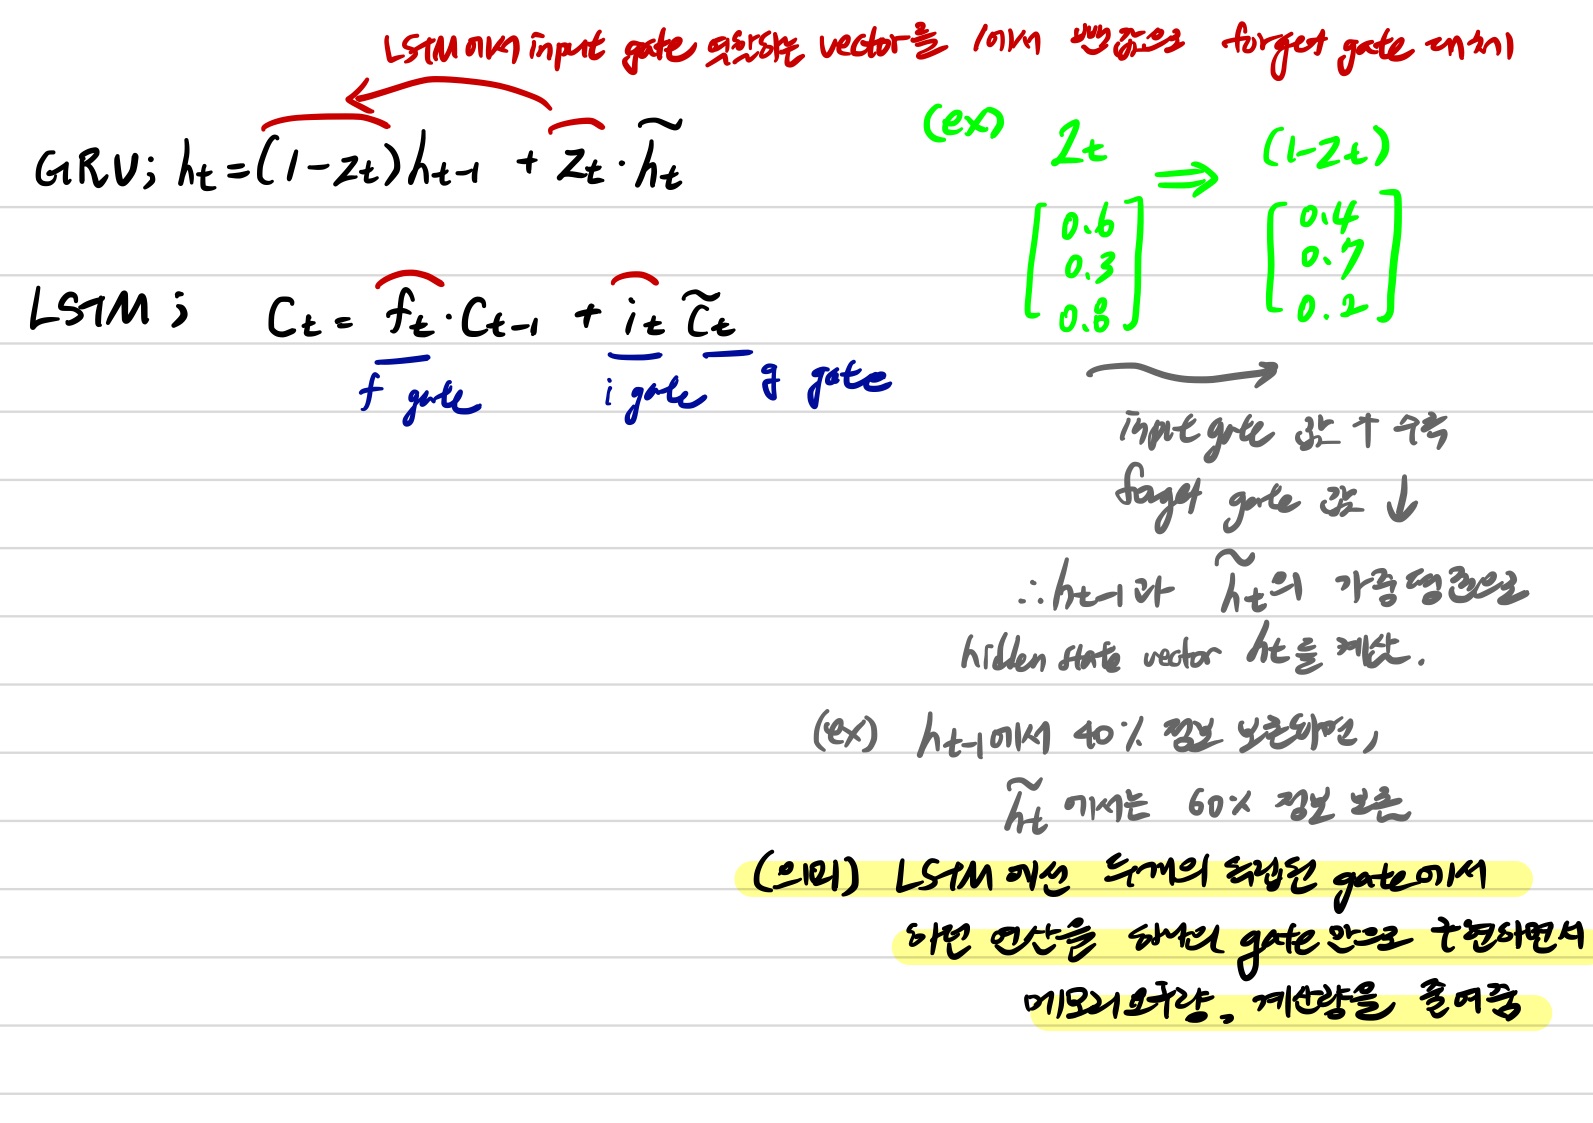 LSTM에서 input gate 역할하는 vector를 1에서 뺀 값으로 forget gate 대체
GRU; h_t = (1-z_t)h_{t-1} + z_t · h̃_t
LSTM ; C_t = f_t · C_{t-1} + i_t c̃_t
f gate
i gate
g gate
(ex)
z_t ⇒ (1-z_t)
[0.6 0.3 0.8]
[0.4 0.7 0.2]
input gate 값 ↑ 수록
forget gate 값 ↓
∴ h_{t-1}과 h̃_t의 가중평균으로
hidden state vector h_t를 계산.
(ex) h_{t-1}에서 40% 정보 보존되면,
h̃_t에서는 60% 정보 보존
(의미) LSTM에선 두개의 독립된 gate에서
하던 연산을 하나의 gate만으로 구현하면서
메모리요구량, 계산량을 줄여줌